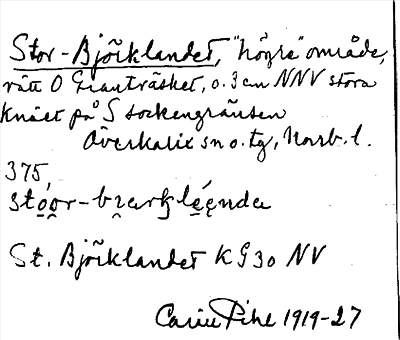 Stor-Björklandet, "högre" område,
rätt O Granträsket, o. 3 cm NNV stora
knäet på S sockengränsen
Överkalix sn o. tg, Norrb. l.
375,
St. Björklandet KG 30 NV
Carin Pihl 1919-27